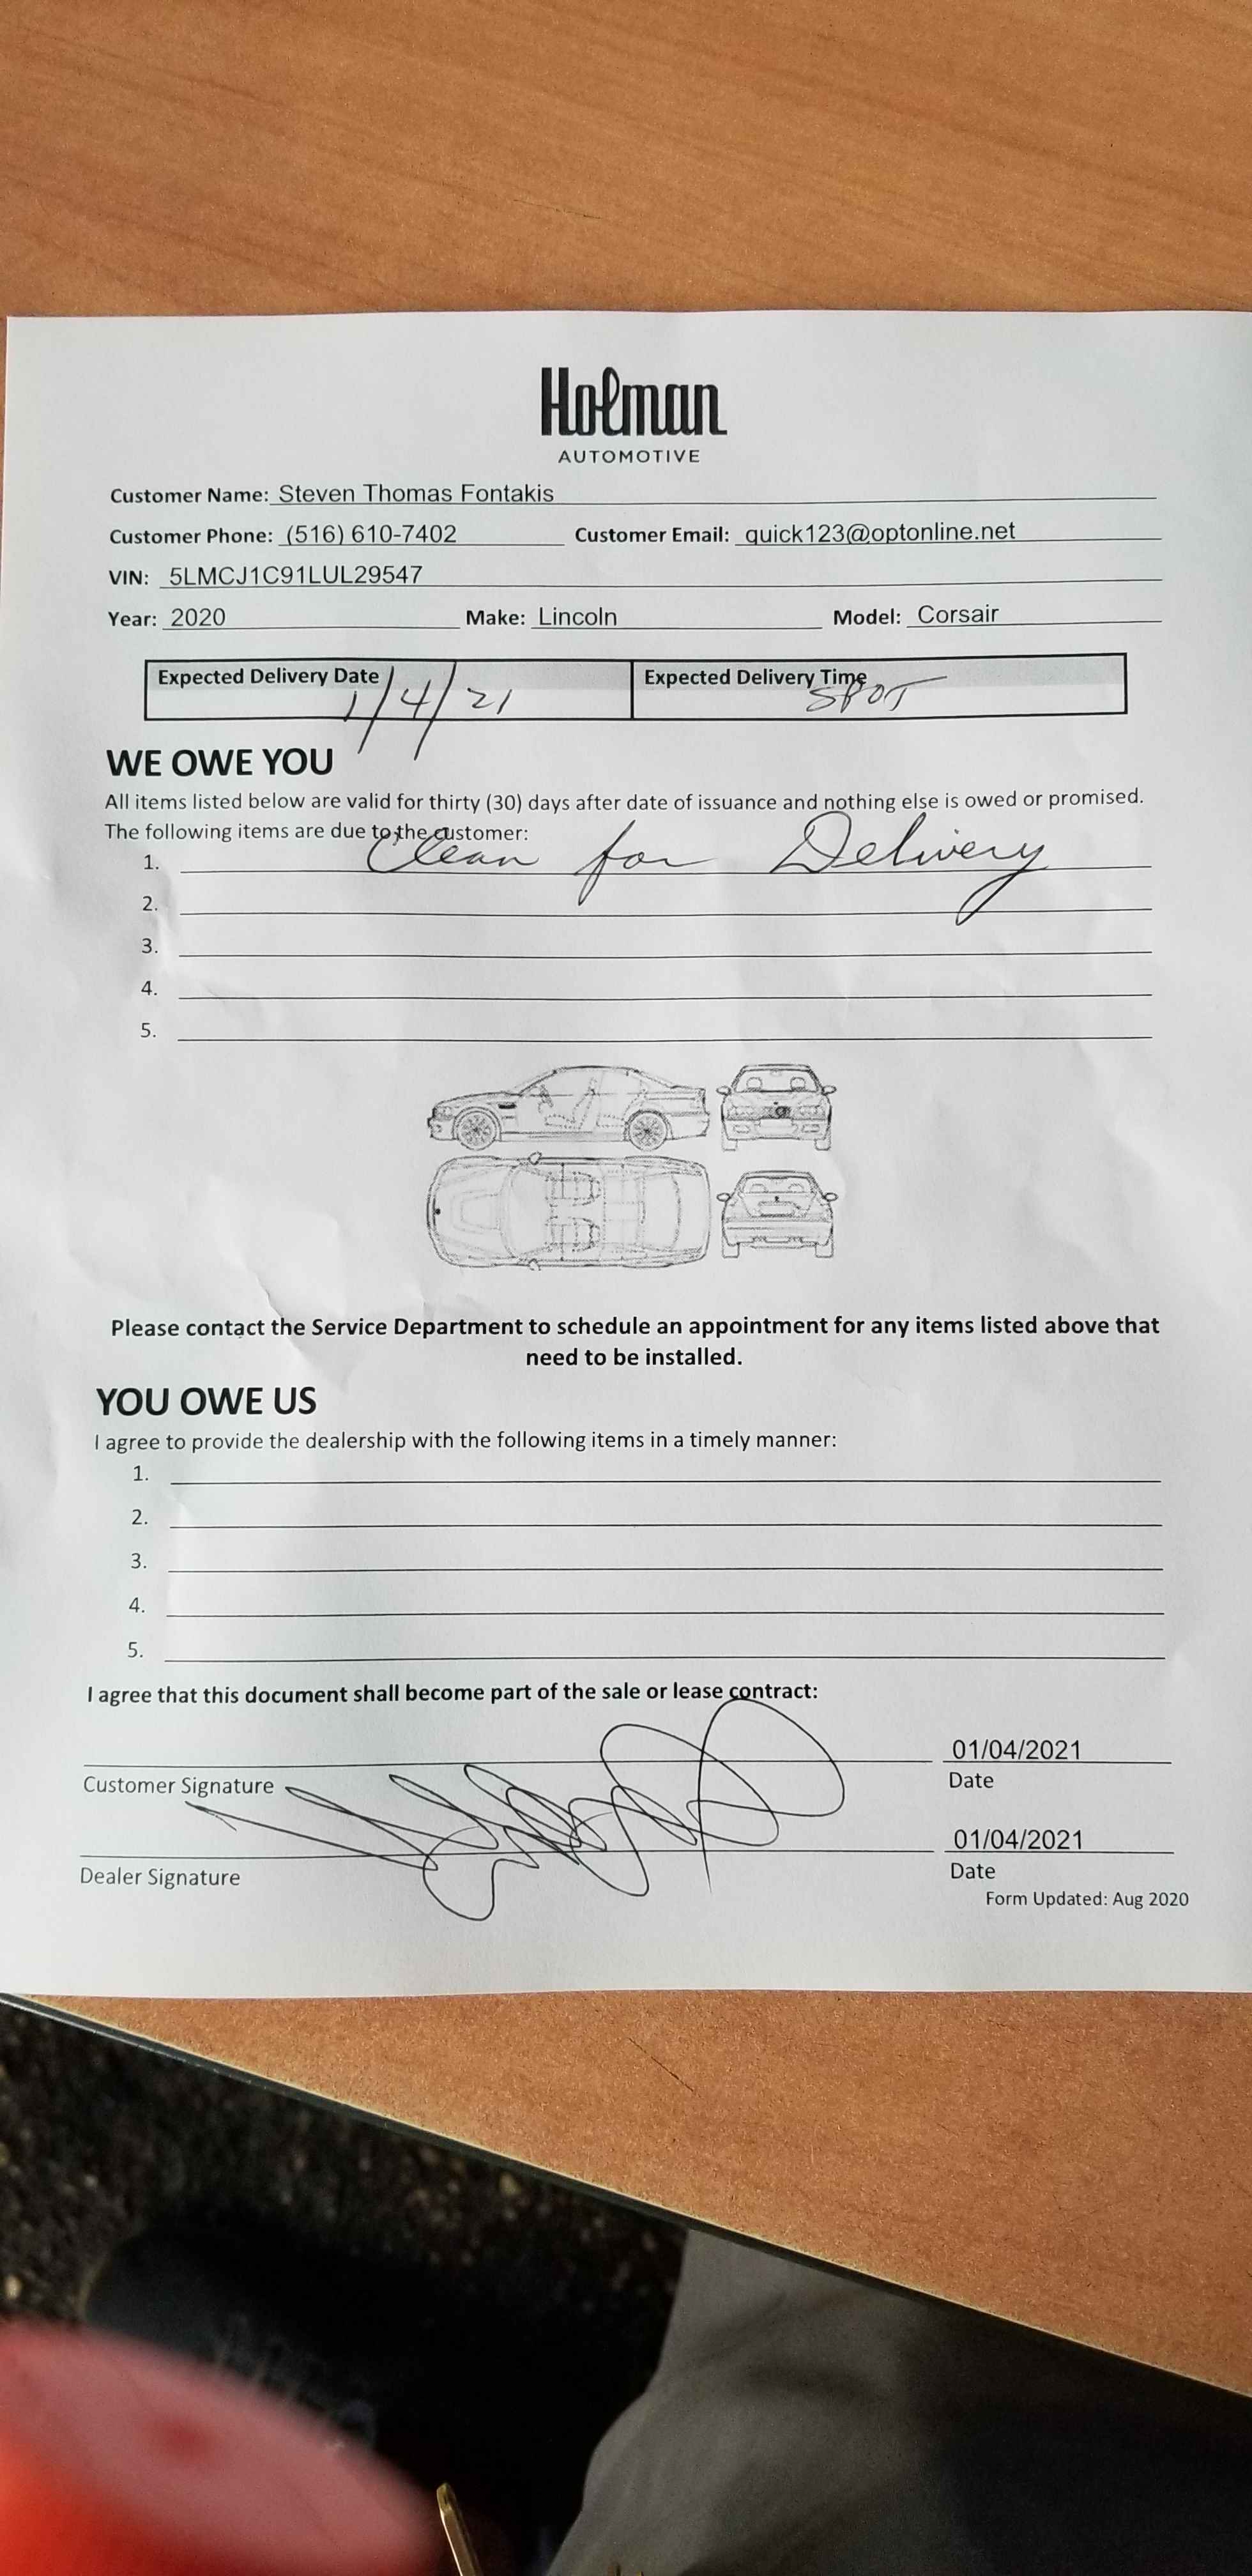 Holman
AUTOMOTIVE
Customer Name: Steven Thomas Fontakis
Customer Phone: (516) 610-7402 Customer Email: quick123@optonline.net
VIN: 5LMCJ1C91LUL29547
Year: 2020 Make: Lincoln Model: Corsair
Expected Delivery Date 1/4/21 Expected Delivery Time SPOT
WE OWE YOU
All items listed below are valid for thirty (30) days after date of issuance and nothing else is owed or promised.
The following items are due to the customer:
1. Clean for Delivery
2.
3.
4.
5.
Please contact the Service Department to schedule an appointment for any items listed above that
need to be installed.
YOU OWE US
I agree to provide the dealership with the following items in a timely manner:
1.
2.
3.
4.
5.
I agree that this document shall become part of the sale or lease contract:
01/04/2021
Customer Signature Date
01/04/2021
Dealer Signature Date
Form Updated: Aug 2020